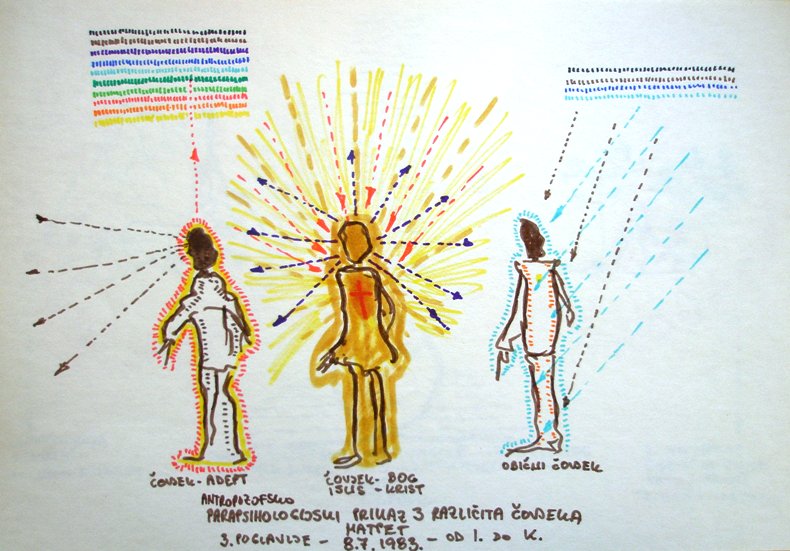 ČOVJEK - ADEPT
ČOVJEK - BOG
ISUS - KRIST
OBIČNI ČOVJEK
ANTROPOZOFSKO
PARAPSIHOLOGIJSKI PRIKAZ 3 RAZLIČITA ČOVJEKA
3. POGLAVLJE - 8.7.1983. - OD I. DO K.